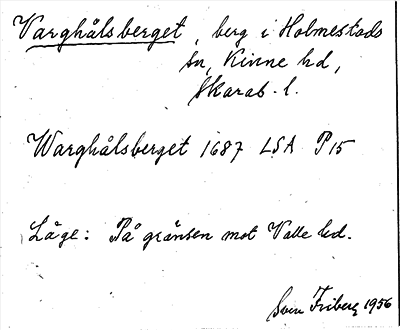 Varghålsberget, berg i Holmestads
sn, Kinne hd,
Skarab. l.
Warghålsberget 1687 LSA P15
Läge: På gränsen mot Valle hd.
Sven Friberg 1956